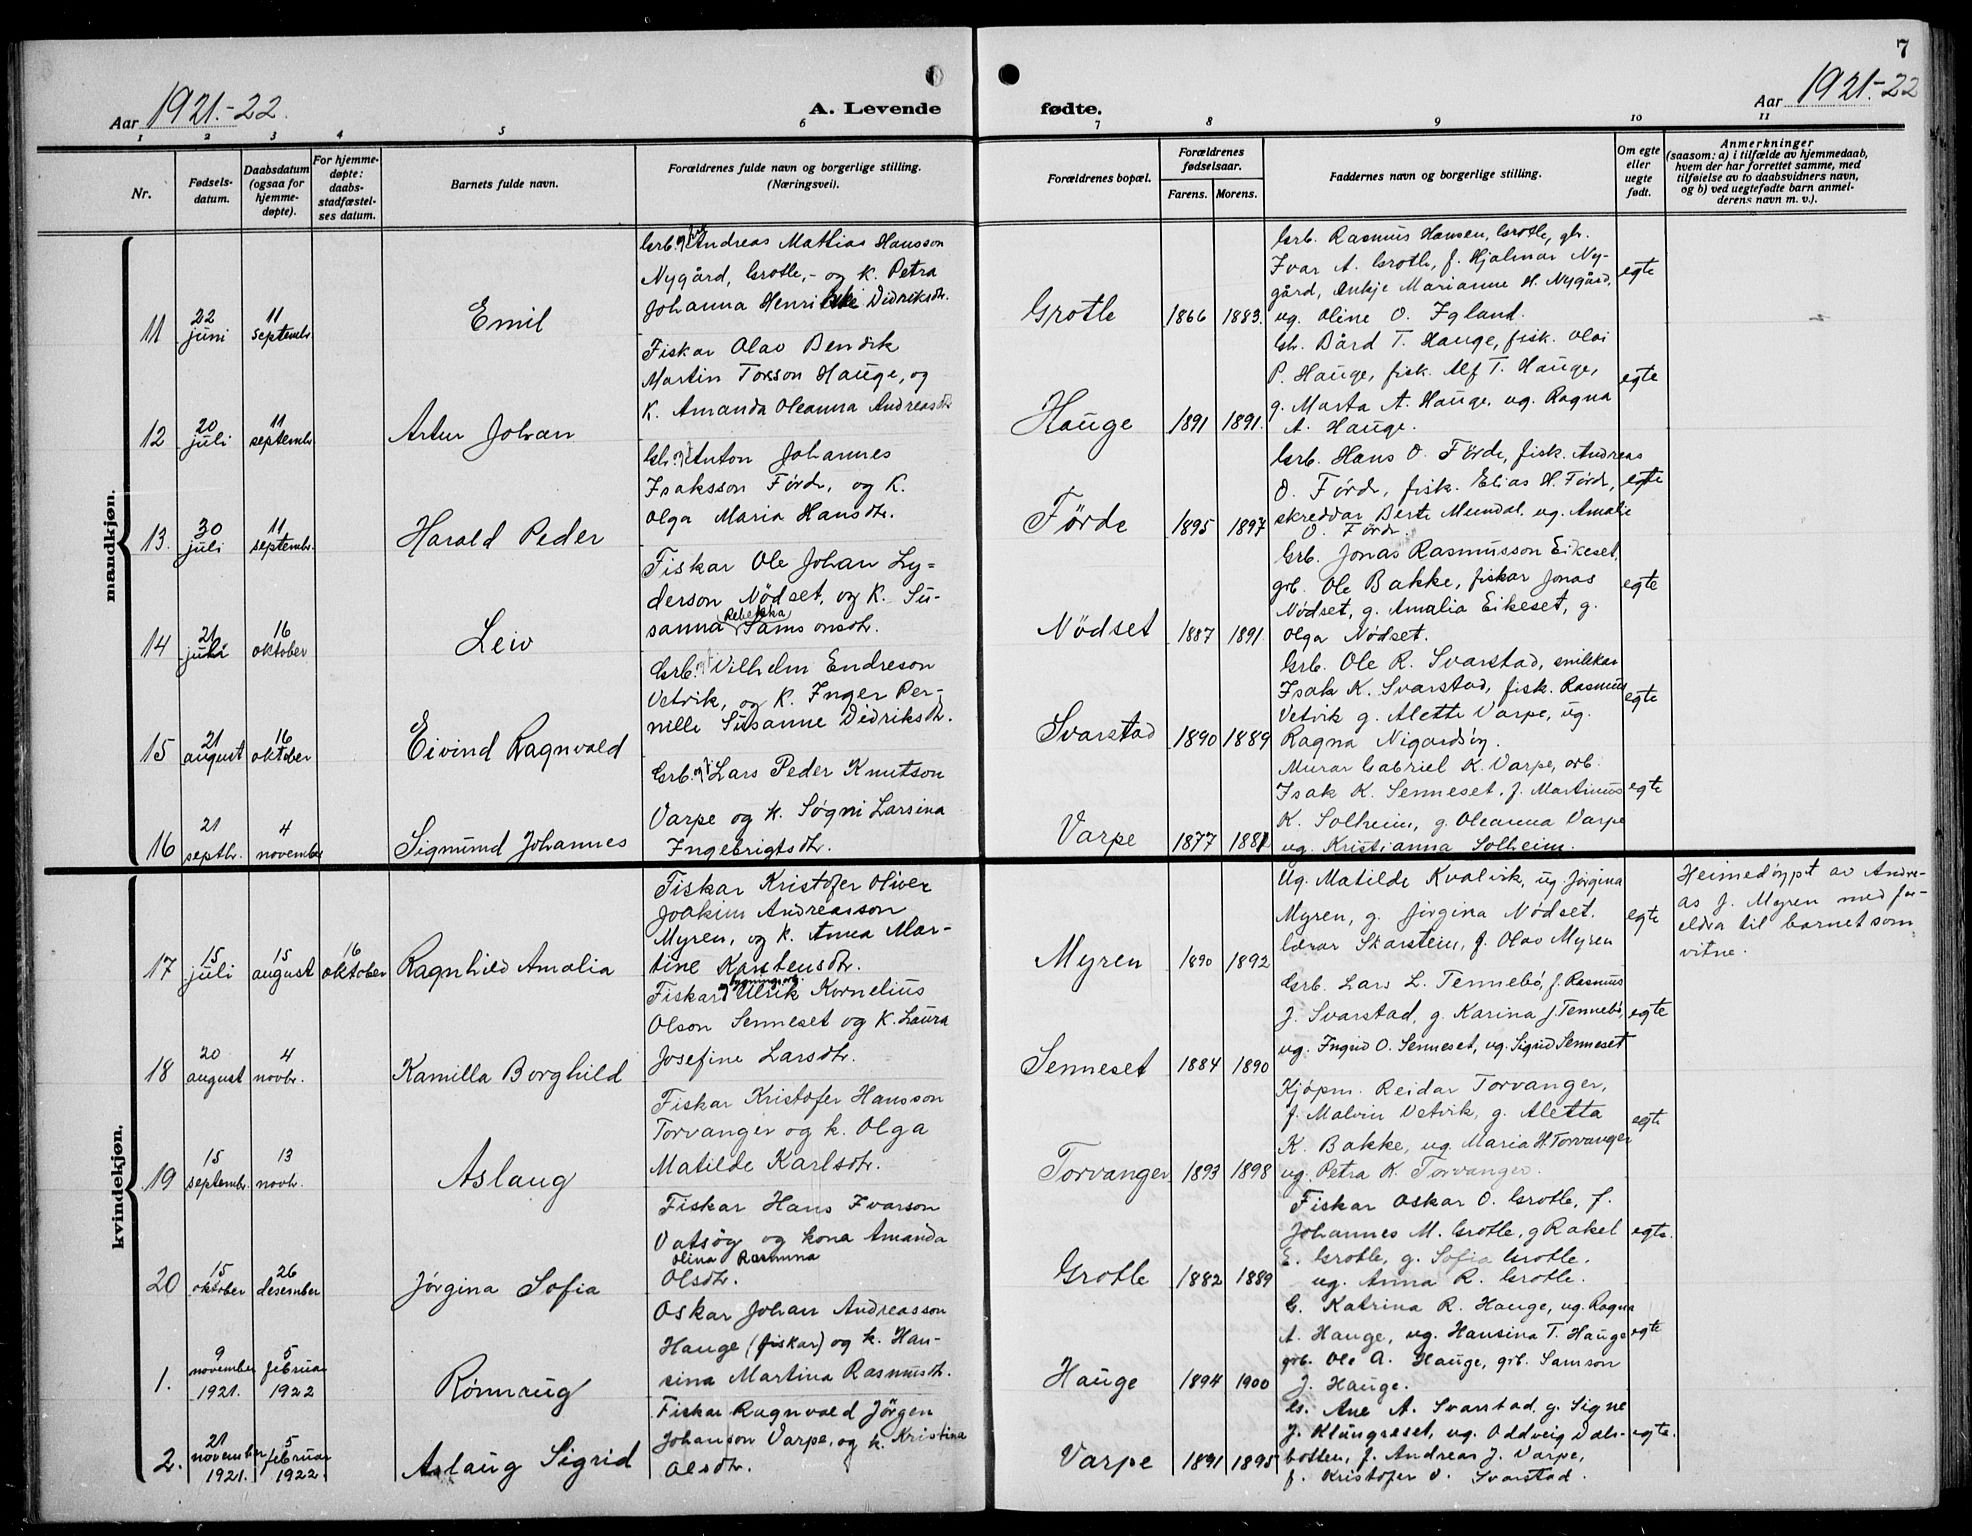 7
Aar 1921.-22.
A. Levende
fødte.
Aar 1921.-22
1 2 3 4 5 6 7 8 9 10 11
Nr.
Fødsels-
datum.
Daabsdatum
(ogsaa for
hjemme-
døpte).
For hjemme-
døpte:
daabs-
stadfæstel-
ses datum.
Barnets fulde navn.
Forældrenes fulde navn og borgerlige stilling.
(Næringsvei).
Forældrenes bopæl.
Forældrenes
fødselsaar.
Farens. Morens.
Faddernes navn og borgerlige stilling.
Om egte
eller
uegte
født.
Anmerkninger
(saasom: a) i tilfælde av hjemmedaab,
hvem der har forrettet samme, med
tilføielse av to daabsvidners navn,
og b) ved uegtefødte barn anmel-
derens navn m. v.).
mandkjøn.
11
22
juni
11
septembr.
Emil
Grb. Andreas Mathias Hansson
Nygård, Grotle, - og k. Petra
Johanna Henrikke Didriksdtr.
Grotle
1866 1883.
Grb. Rasmus Hansen, Grotle, gbr.
Ivar A. Grotle, f. Hjalmar Ny-
gård, Enkje Marianne H. Nygård,
ug. Oline O. Igland.
egte
12
20
juli
11
septembr
Artur Johan
Fiskar Olav Bendik
Martin Torsson Hauge, og
K. Amanda Oleanna Andreasdtr
Hauge
1891 1891.
Gb. Bård T. Hauge, fisk. Olai
P. Hauge, fisk. Alf T. Hauge,
g. Marta A. Hauge, ug. Ragna
A. Hauge.
egte
13.
30
juli
11
septembr.
Harald Peder
Gb. Anton Johannes
Isaksson Førde, og K.
Olga Maria Hansdtr.
Förde
1895 1897
Grb. Hans O. Förde, fisk. Andreas
O. Förde, fisk. Elias H. Förde,
skreddar Berte Mundal, ug. Amalie
O. Förde.
egte
14
21
juli
16
oktober
Leiv
Fiskar Ole Johan Ly-
derson Nødset, og K. Su-
Rebekka
sanna Samsonsdtr.
Nödset
1887 1891.
Grb. Jonas Rasmusson Eikeset,
grb. Ole Bakke, fiskar Jonas
Nödset, g. Amalia Eikeset, g.
Olga Nødset.
egte
15
21
august
16
oktober
Eivind Ragnvald
Grb. Vilhelm Endreson
Vetvik, og K. Inger Per-
nille Susanne Didriksdtr.
Svarstad
1890 1889
Grb. Ole R. Svarstad, snikkar
Isak K. Svarstad, fisk. Rasmus
Vetvik g. Alette Varpe, ug.
Ragna Nigardsøy.
egte
16
21
septbr.
4
november
Sigmund Johannes
Grb. Lars Peder Knutson
Varpe og k. Søgni Larsina
Ingebrigtsdtr.
Varpe
1877 1881
Murar Gabriel K. Varpe, arb.
Isak K. Senneset, f. Martinus
K. Solheim, g. Oleanna Varpe
ug. Kristianna Solheim.
egte
kvindekjøn.
17
15
juli
15
august
16
oktober
Ragnhild Amalia
Fiskar Kristofer Oliver
Joakim Andreasson
Myren, og k. Anna Mar-
tine Karstensdtr.
Myren
1890 1892
Ug. Matilde Kvalvik, ug. Jørgina
Myren, g. Jørgina Nødset.
lærar Skarstein, f. Olav Myren
egte
Heimedøypt av Andre-
as J. Myren med for-
eldra til barnet som
vitne.
18
20
august
4
novbr.
Kamilla Borghild
bygningsarb.
Fiskar Ulrik Kornelius
Olson Senneset og k. Laura
Josefine Larsdtr.
Senneset
1884 1890
Grb. Lars L. Tennebø, f. Rasmus
J. Svarstad, g. Karina J. Tennebø,
ug. Ingrid O. Senneset, ug. Sigrid Senneset
egte
19
15
septembr.
13
novbr.
Aslaug
Fiskar Kristofer Hansson
Torvanger og k. Olga
Matilde Karlsdtr.
Torvanger
1893 1898
Kjöpm. Reidar Torvanger,
f. Malvin Vetvik, g. Aletta
K. Bakke, ug. Maria H. Torvanger
ug. Petra K. Torvanger.
egte
20
15
oktober
26
desember
Jørgina Sofia
Fiskar Hans Ivarson
Vatsøy og kona Amanda
Olina Rasmina
Olsdtr.
Grotle
1882 1889
Fiskar Oskar O. Grotle, f.
Johannes M. Grotle, g Rakel
E. Grotle, g. Sofia Grotle.
ug. Anna R. Grotle.
egte.
1.
9
november
1921.
5
februar
1922
Rønnaug
Oskar Johan Andreasson
Hauge (fiskar) og k. Han-
sina Martina Rasmusdtr.
Hauge
1894 1900
G. Katrina R. Hauge, ug. Ragna
A. Hauge, ug. Hansina T. Hauge
grb. Ole A. Hauge, grb. Samson
J. Hauge.
egte
2.
21
november
1921.
5
februar
1922.
Aslaug Sigrid
Fiskar Ragnvald Jörgen
Johanson Varpe, og k. Kristina
Olsdtr.
Varpe
1891 1895
G. Ane A. Svarstad, g. Signe
J. Klungreset, ug. Oddveig Dals-
botten, f. Andreas J. Varpe,
f. Kristofer O. Svarstad.
egte.